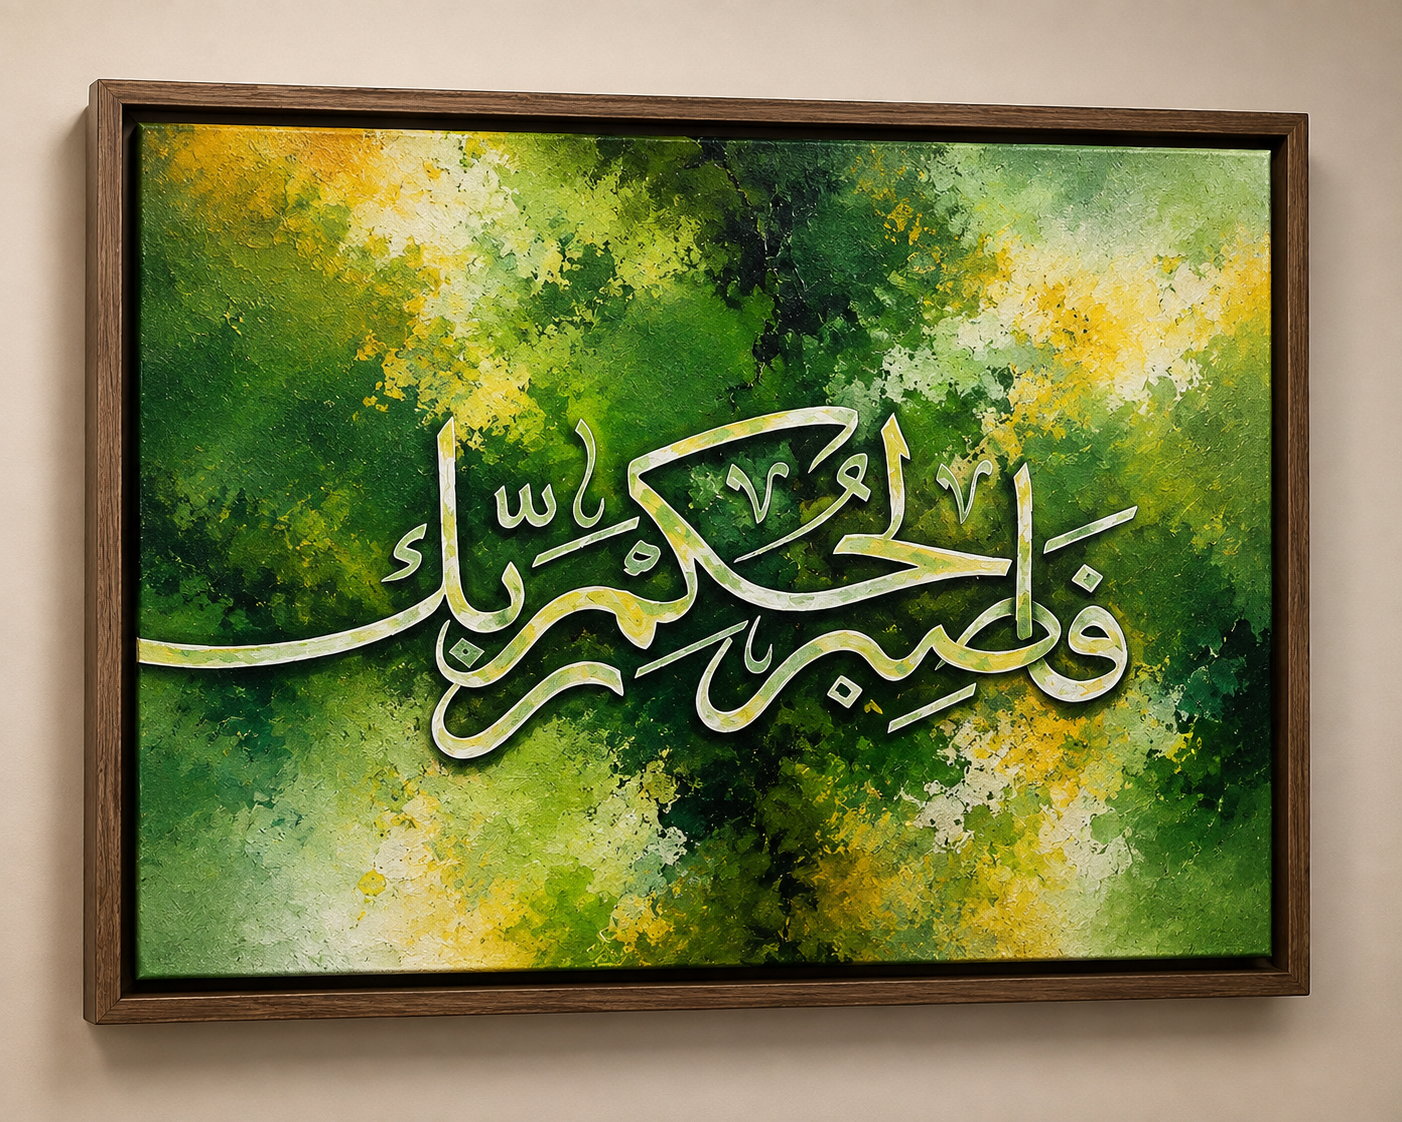 فَاصْبِرْ لِحُكْمِ رَبِّكَ